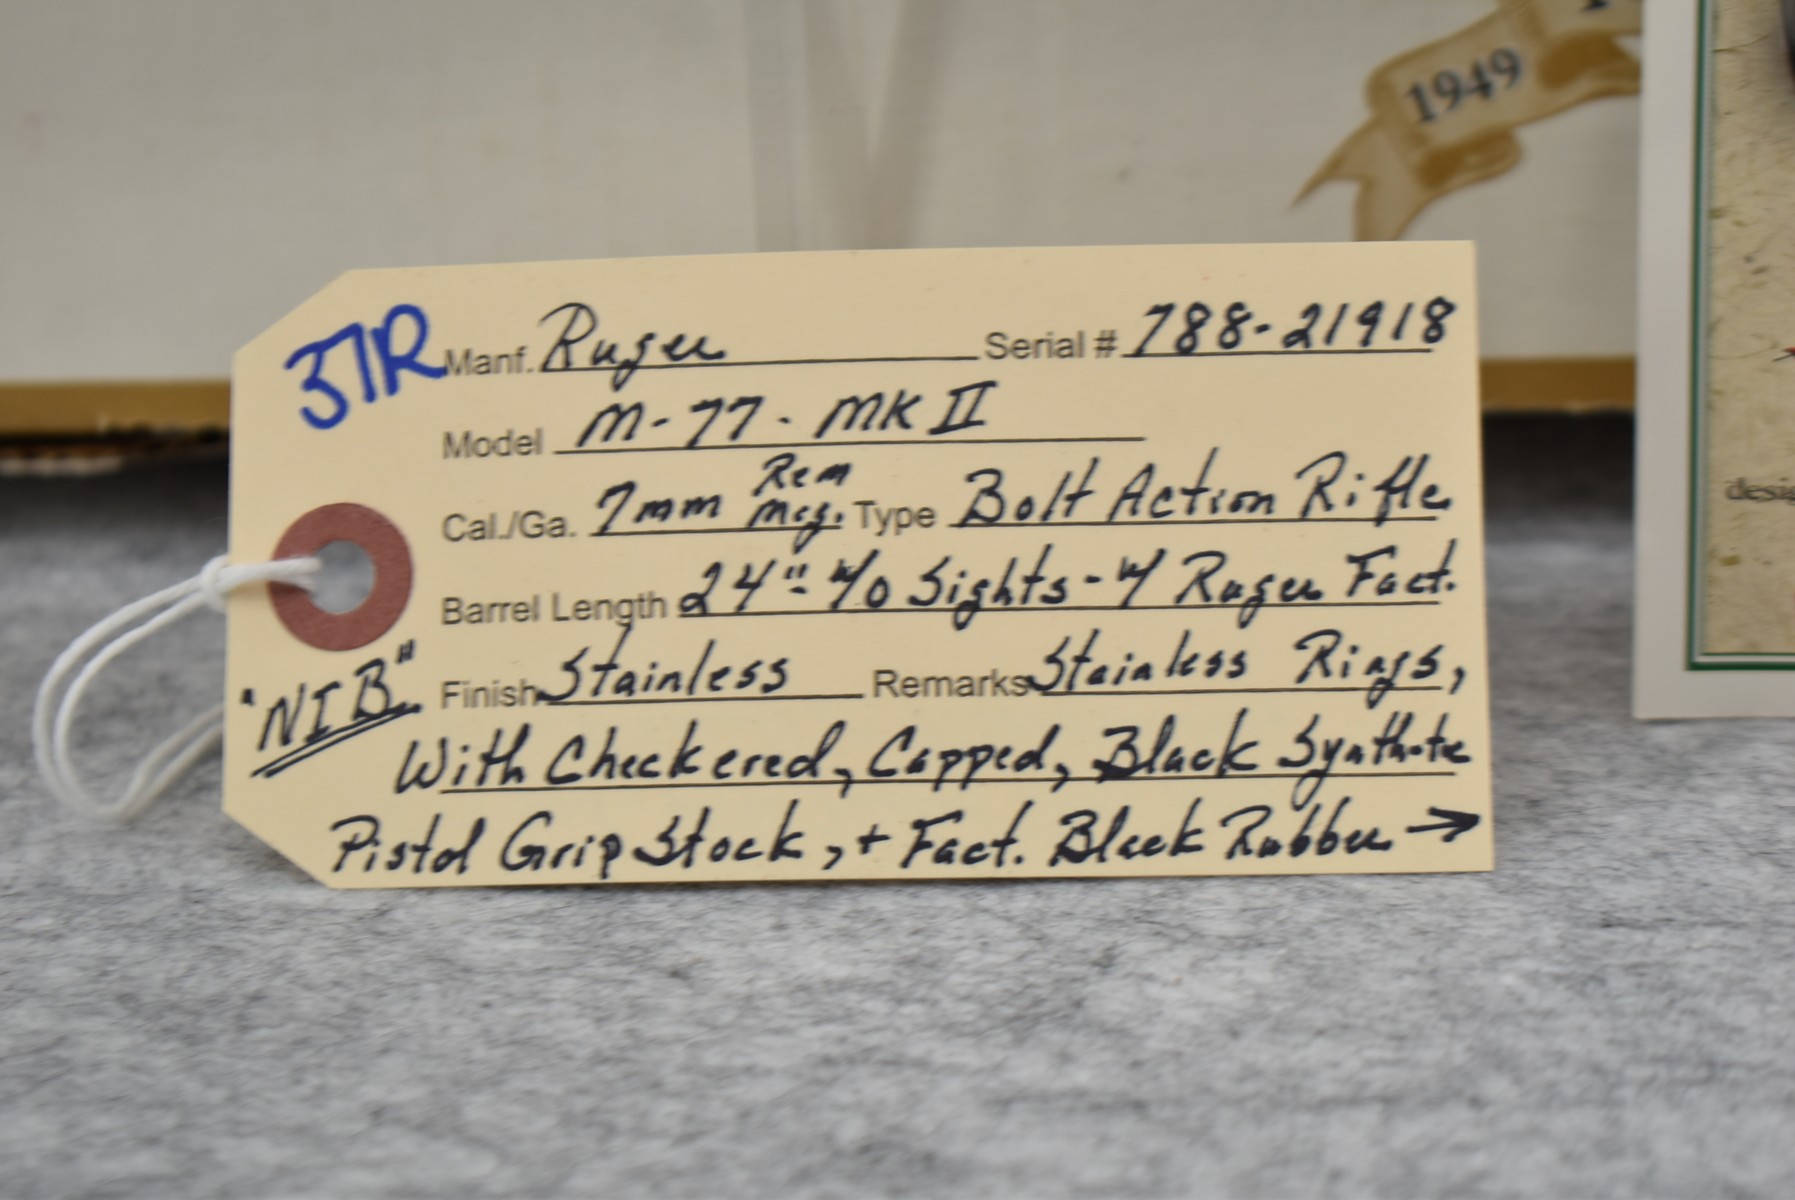 1949
37R Manf. Ruger Serial # 788-21918
Model M-77-MK II
Cal./Ga. 7mm Rem Mag. Type Bolt Action Rifle
Barrel Length 24"- w/o Sights - w/ Ruger Fact.
"NIB" Finish Stainless Remarks Stainless Rings,
With Checkered, Capped, Black Synthetic
Pistol Grip Stock, + Fact. Black Rubber →